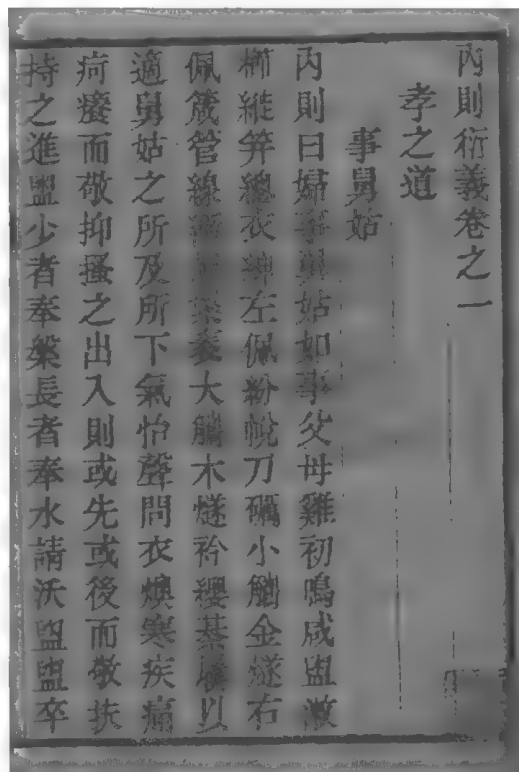 內則衍義卷之一
孝之道
事舅姑
內則曰婦事舅姑如事父母雞初鳴咸盥漱
櫛縰笄總衣紳左佩紛帨刀礪小觿金燧右
佩箴管線袠大觿木燧衿纓綦屨以
適舅姑之所及所下氣怡聲問衣燠寒疾痛
疴癢而敬抑搔之出入則或先或後而敬扶
持之進盥少者奉槃長者奉水請沃盥盥卒